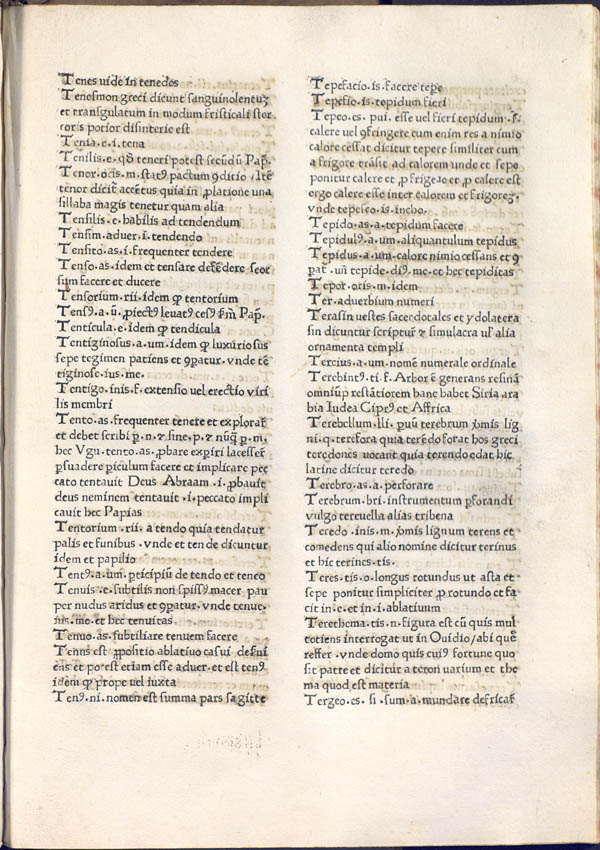 Tenes uide in tenedos
Tenesmon greci dicunt sanguinolentuꝫ
et transgulatum in modum fristicali stor
roris potior disinterie est
Tenia .e .i. tena
Tensilis .e. qđ teneri potest secūdū Pap̄.
Tenor .oris .m. statꝰ pactum ꝯditio . Itē
tenor dicit᷑ accētus quia in ꝓlatione una
sillaba magis tenetur quam alia
Tensilis .e. habilis ad tendendum
Tensim .aduer .i. tendendo
Tensito .as .i. frequenter tendere
Tenso .as .idem et tensare defēdere seor
sum facere et ducere
Tensorium .rii. idem ꝙ tentorium
Tensꝰ .a .ū. ꝓiectꝰ leuatꝰ cesꝰ Pap̄.
Tenticula .e. idem ꝙ tendicula
Tentiginosus .a .um .idem ꝙ luxuriosus
sepe tegimen patiens et ꝯpatur . vnde tē
tiginose .ius .me.
Tentigo .inis .f. extensio uel erectio viri
lis membri
Tento .as .frequenter tenere et explorar᷑
et debet scribi p̱ .n. ⁊ sine .p. ⁊ nūꝙ p̱ .m.
hec Vgu .tento .as .ꝓbare expiri lacesser᷑
ꝑsuadere ꝑiculum facere et implicare pec
cato tentauit Deus Abraam .i. ꝓbauit
deus neminem tentauit .i. peccato impli
cauit hec Papias
Tentorium .rii. a tendo quia tendatur
palis et funibus . vnde et ten de dicuntur
idem et papilio
Tentꝰ .a .um .ꝑticipiū de tendo et teneo
Tenuis .e .subtilis non spissꝰ macer pau
per nudus aridus et ꝯpatur . vnde tenue.
ius .me. et hec tenuitas
Tenuo .as .subtiliare tenuem facere
Tenus est ꝓpositio ablatiuo casui deserui
ens et potest etiam esse aduer .et est tenꝰ
idem ꝙ prope uel iuxta
Tenꝰ .ni .nomen est summa pars sagitte
Tepefacio .is .facere tepe
Tepefio .is .tepidum fieri
Tepeo .es . pui. esse uel fieri tepidum .s.
calere uel ꝯfringere cum enim res a nimio
calore cessat dicitur tepere similiter cum
a frigore trāsit ad calorem unde et sepe
ponitur calere et ꝓ frigeƒo et ꝓ calere est
ergo calere esse inter calorem et frigoreꝫ.
vnde tepesco .is .incho.
Tepido .as .a .tepidum facere
Tepidulꝰ .a .um .aliquantulum tepidus
Tepidus .a .um .calore nimio cessans et ꝯ
pat᷑ . uñ tepide .diꝰ .me .et hec tepiditas
Tepor .oris .m .idem
Ter .aduerbium numeri
Terasin uestes sacerdotales et ydolatera
sin dicuntur scriptur᷑ ⁊ simulacra ul᷑ alia
ornamenta templi
Tercius .a .um .nomē numerale ordinale
Terebintꝰ .ti .f. Arbor ē generans resinā
omniuꝫ restātiorem hanc habet Siria ara
bia Iudea Ciprꝰ et Affrica
Terebellum .lli. ꝑuū terebrum lig
ni .q. terefora quia terēdo forat hos greci
teredones uocant quia terendo edat hic
latine dicitur teredo
Terebro .as .a .perforare
Terebrum .bri .instrumentum ꝑforandi
vulgo teruella alias tribena
Teredo .inis .m. lignum terens et
comedens qui alio nomine dicitur terinus
et hic terincs .tis.
Teres .tis .o .longus rotundus ut asta et
sepe ponitur simpliciter ꝓ rotundo et fa
cit in .e .et in .i .ablatiuum
Terethema .tis .n .figura est cū quis mul
totiens interrogat ut in Ouidio / abi quē
reffer . vnde domo quis cuiꝰ fortune quo
sit patre et dicitur a teron uarium et the
ma quod est materia
Tergeo .es . si .sum .a .mundare defricar᷑